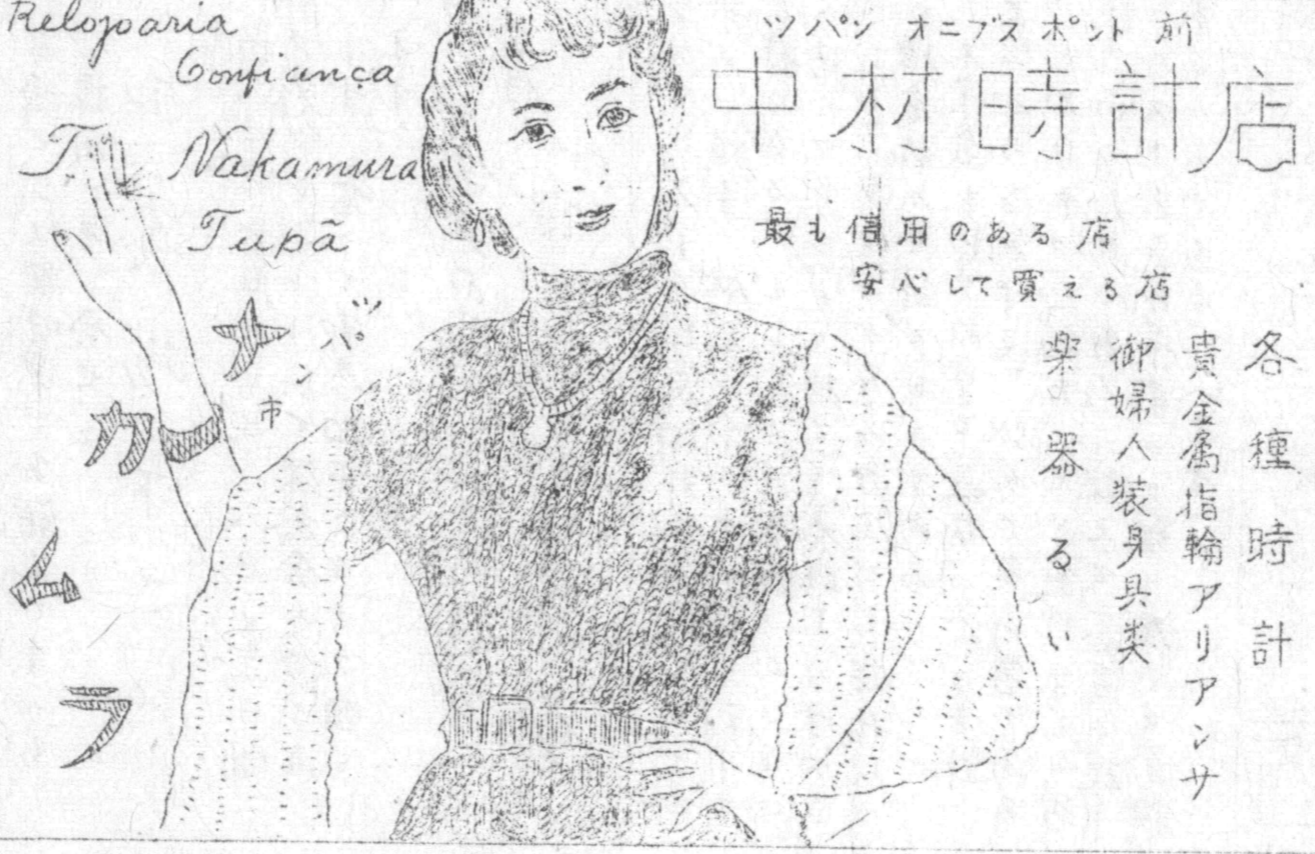 Relojoaria
Confiança
T. Nakamura
Tupã
ツパン市
ナカムラ
ツパン オニブス ポント 前
中村時計店
最も信用のある店
安心して買える店
各種時計
貴金属指輪アリアンサ
御婦人装身具类
楽器るい